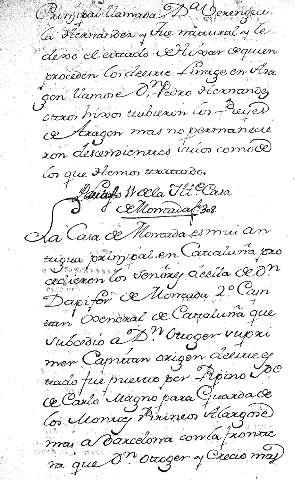 Prinçipal llamada D.ª Berengue
la Hernandez y fue natural y le
dexo el estado de Hixar de quien
proceden los de este Linage en Ara
gon llamose D.n Pedro Hernandez
otros hixos tubieron los Reyes
de Aragon mas no permanecie
ron descendientes suios como de
los que hemos tratado.
de la Casa
de Moncada
La Casa de Moncada es mui an
tigua y principal en Cataluña pro
cedieron los Señores de ella de D.n
Dapifer de Moncada 2º Capi
tan General de Cataluña que
subcedio a D.n Otoger su pri
mer Capitan origen de este es
tado fue puesto por Pipino P.e
de Carlo Magno para Guarda de
los Montes Pirineos Alargose
mas a Barcelona con la fronte
ra que D.n Otoger y Crecio mas